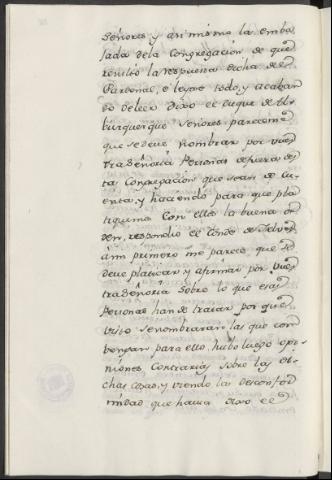 Señores, y asi mismo la emba
jada dela Congregacion de que
resultó la respuesta dicha de
Pardones, é leyose todo, y acaban
do de leer Dixo el Duque de Al
burquerque Señores pareceme
que se deve nombrar por vues
tra Señoria Personas de fuera des
ta Congregacion que sean de cu
enta, y haciendo para que pla
tiquemos con ellos la buena or
den, respondio el Conde de
primero me parece que se
deve platicar y afirmar por vues
tra Señoria sobre lo que esas
Personas han de tratar por que
visto se nombraran las que con
vengan para ello, hubo luego opi
niones Contrarias sobre las di
chas cosas, y viendo la desconfor
midad que havia Dixo el